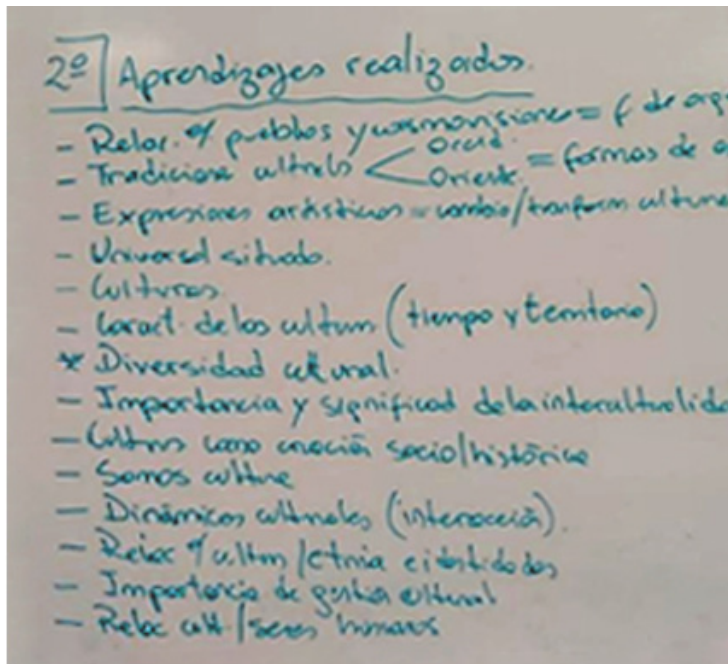 2º Aprendizajes realizados.
- Relac. % pueblos y cosmovisiones = f de
- Tradicione cultrels < Occid. Oriente = formas de
- Expresiones artísticas = cambio/transform culture
- Universal situado.
- Culturas.
- Caract. de las culturas (tiempo y territorio)
* Diversidad cultural.
- Importancia y significad de la interculturalida
- Cultura como creación socio/histórica
- Somos culture
- Dinámicas culturales (interacción).
- Relac % cultura /etnia e identidades
- Importancia de gestión cultural
- Relac cult/seres humanos